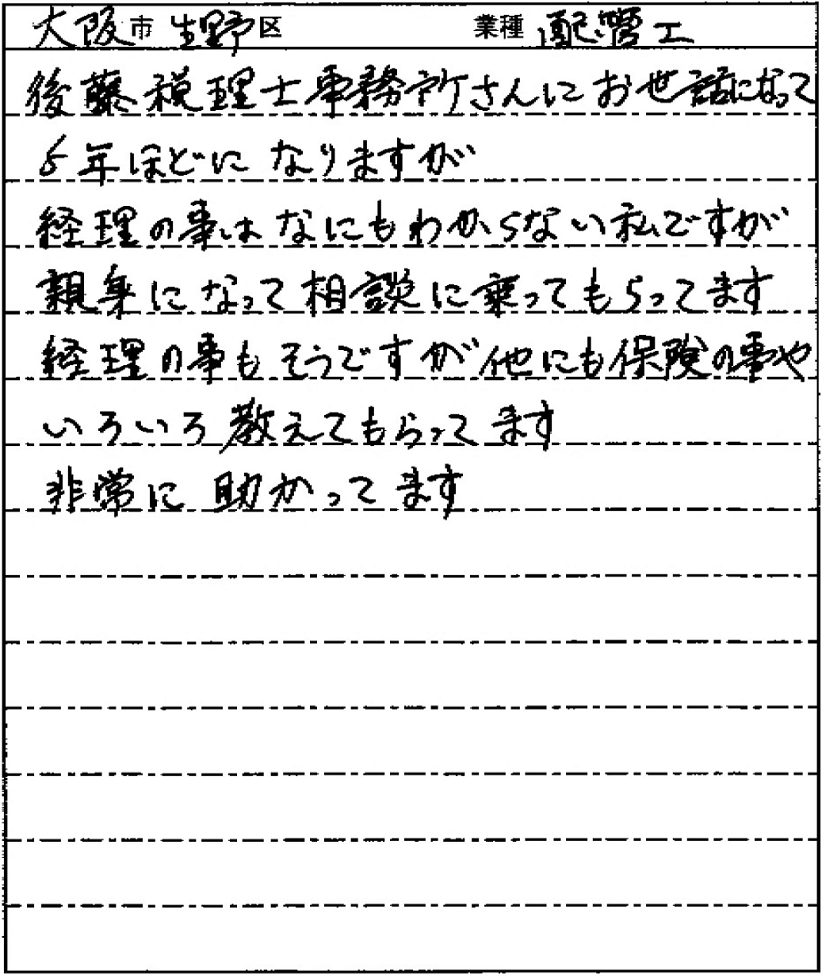 大阪市 生野区 業種 配管工
後藤税理士事務所さんにお世話になって
5年ほどになりますが
経理の事はなにもわからない私ですが
親身になって相談に乗ってもらってます
経理の事もそうですが他にも保険の事や
いろいろ教えてもらってます
非常に助かってます